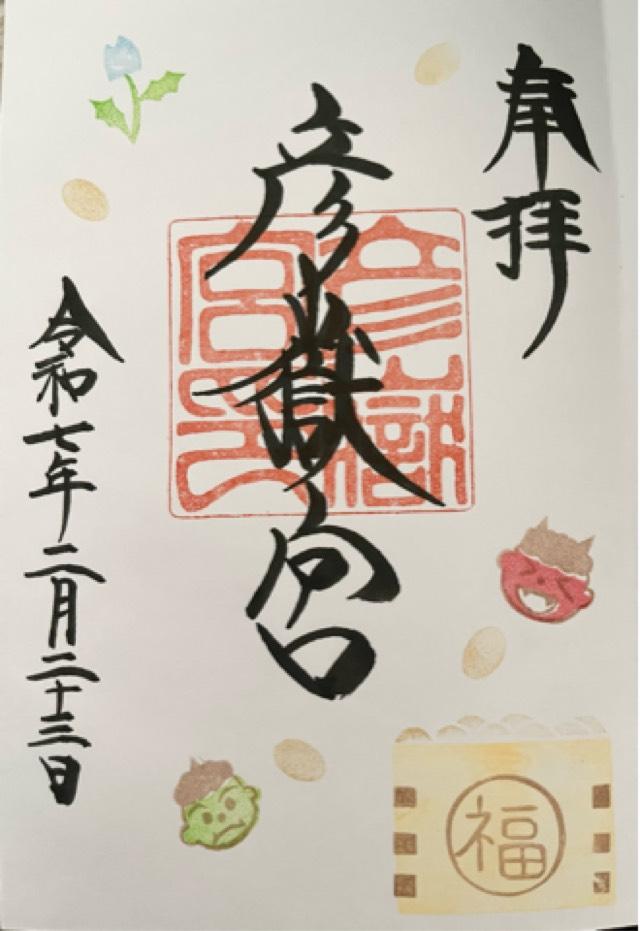 奉拝
彦嶽宮
彦嶽
宮印
令和七年二月二十三日
福